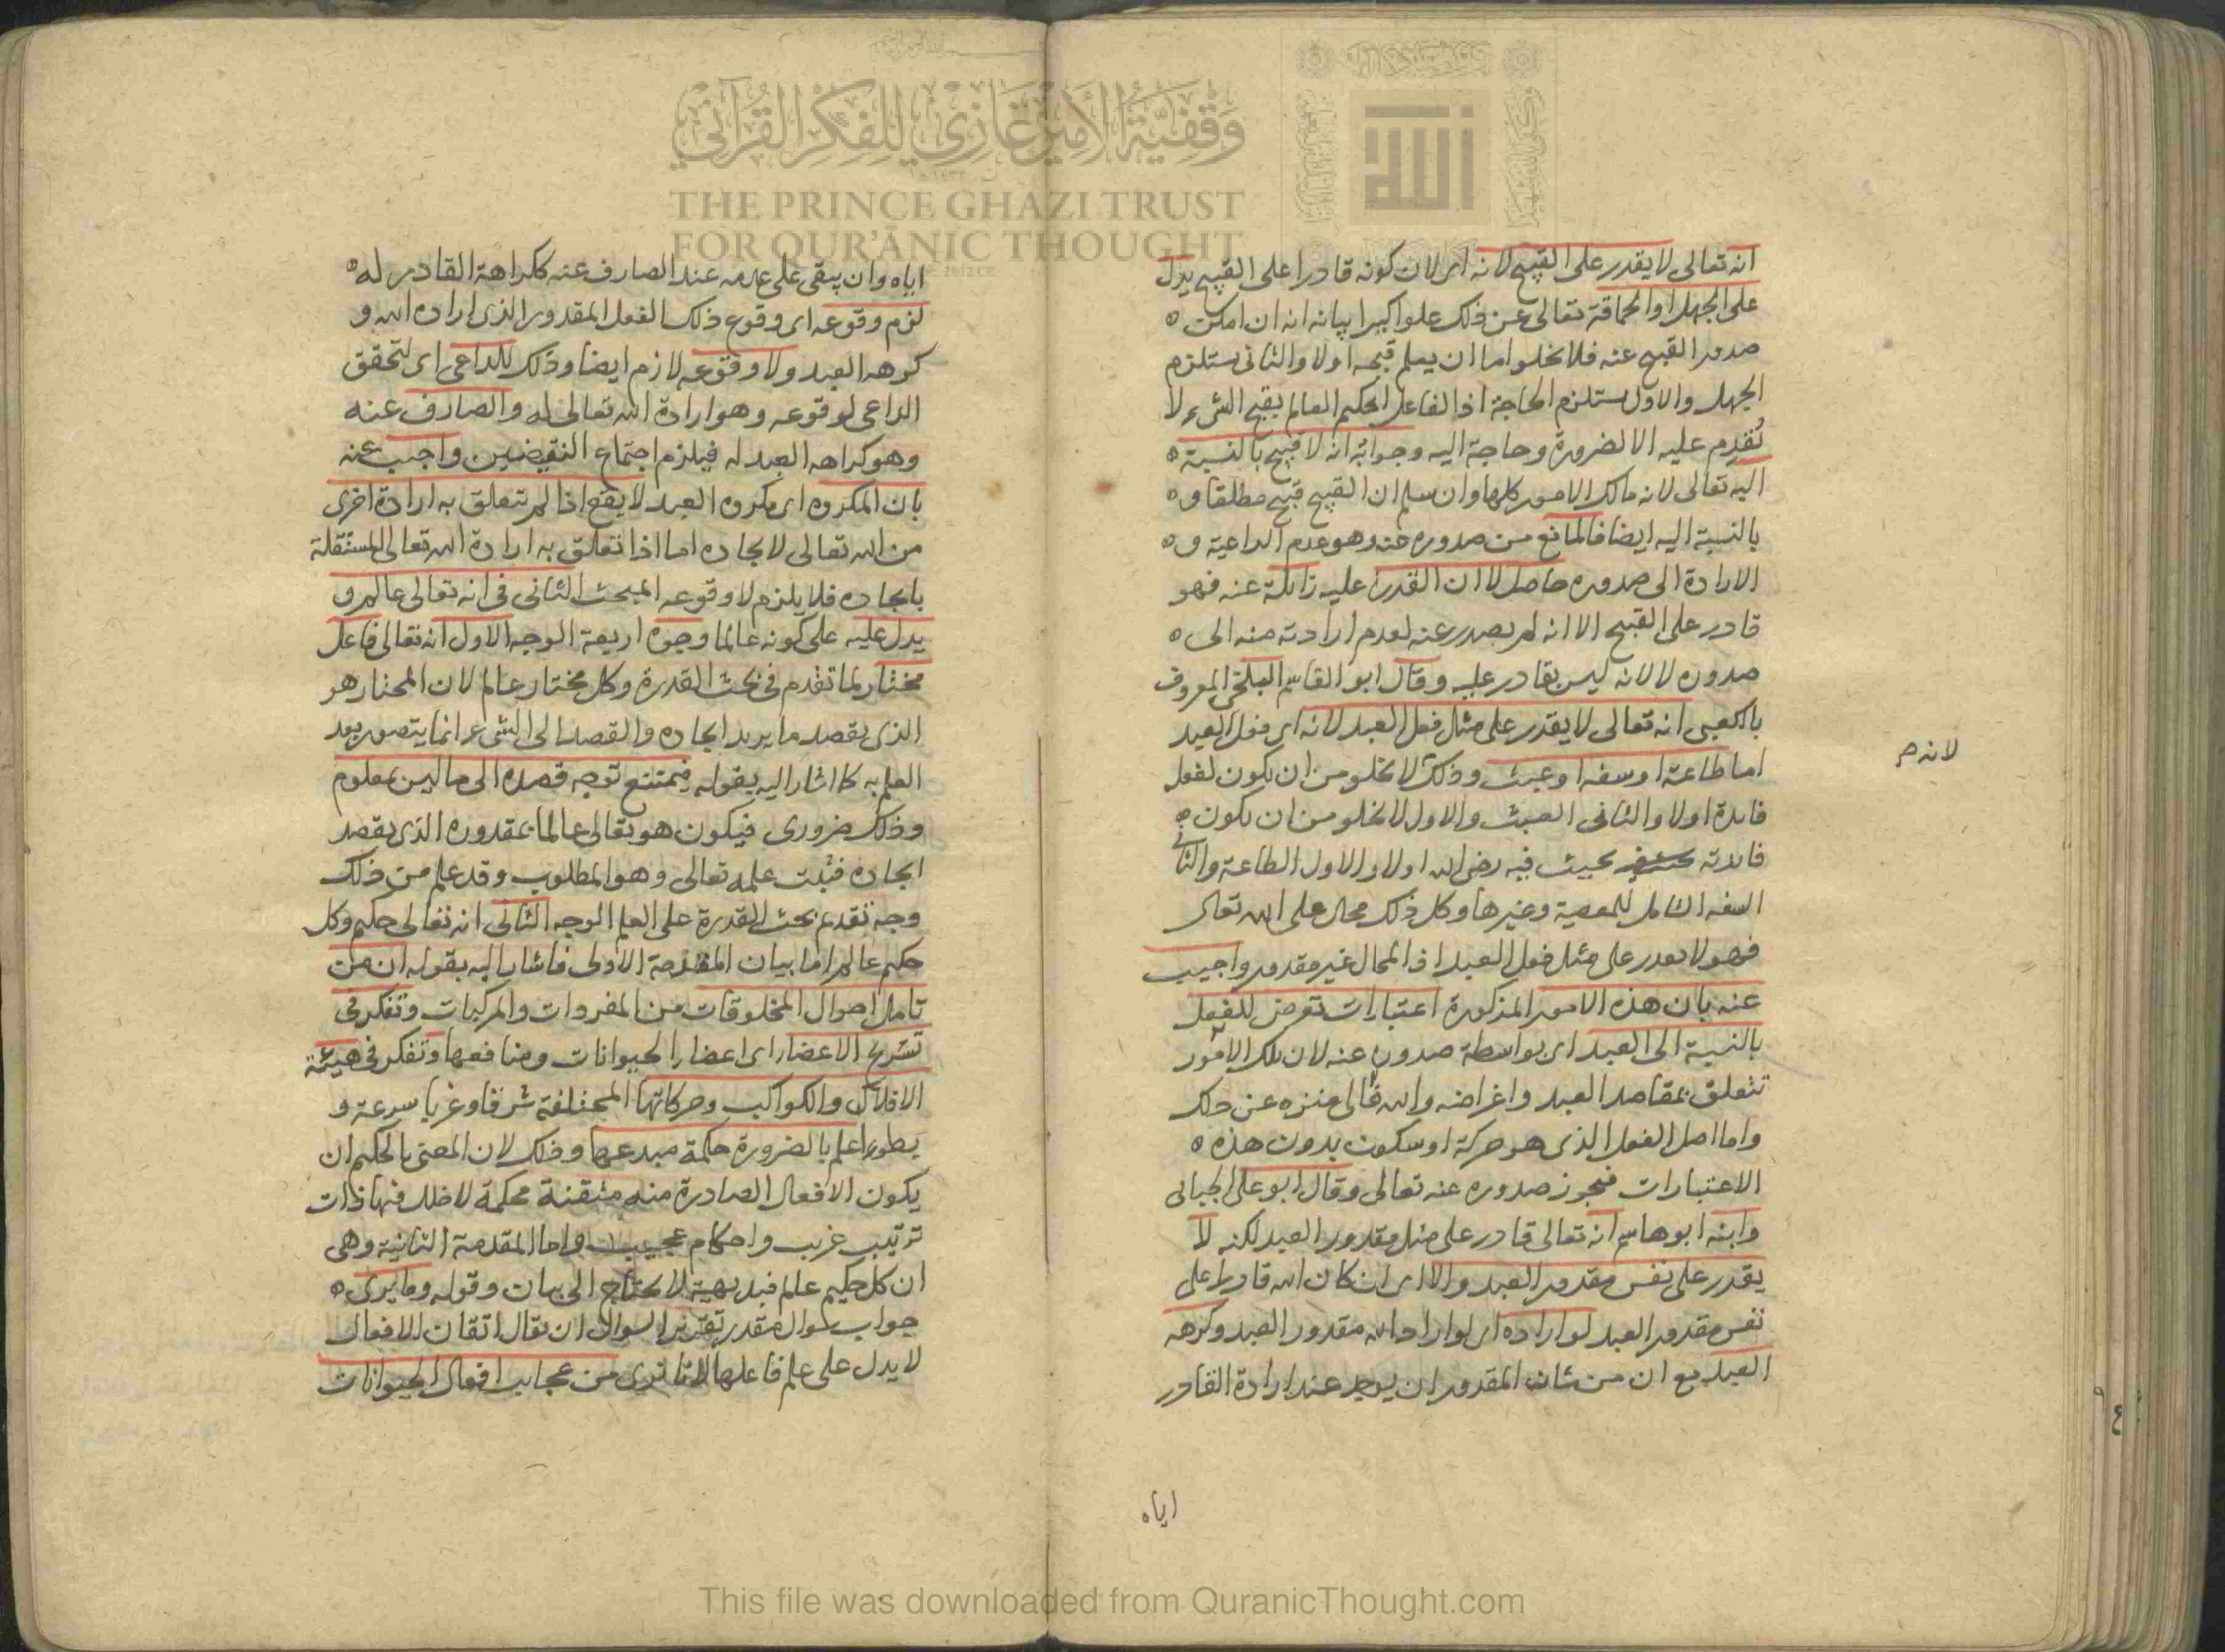 انه تعالى لا يقدر على القبيح لانه اى لان كونه قادرا على القبيح يدل
على الجهل او الحماقة تعالى عن ذلك علوا كبيرا بيانه انه ان امكن ٥
صدور القبيح عنه فلا يخلوا اما ان يعلم قبحه اولا والثانى يستلزم
الجهل والاول يستلزم الحاجة اذ الفاعل الحكيم العالم بقبح الشىء لا
تقدم عليه الا لضرورة وحاجة اليه وجوابه انه لا قبيح بالنسبة ٥
اليه تعالى لانه مالك الامور كلها وان سلم ان القبيح قبيح مطلقا و ٥
بالنسبة اليه ايضا فالمانع من صدوره عنه وهو عدم الداعية و ٥
الارادة الى صدوره حاصل لا ان القدرة عليه زائلة عنه فهو
قادر على القبيح الا انه لم يصدر عنه لعدم ارادته منه الى ٥
صدوره لا لانه ليس بقادر عليه وقال ابو القاسم البلخى المعروف
بالكعبى انه تعالى لا يقدر على مثل فعل العبد لانه اى فعل العبد
اما طاعة او سفه او عبث وذلك لا يخلو من ان يكون لفعل
لانه م
فائدة اولا والثانى العبث والاول لا يخلو من ان يكون ٥
فائدته بحيث فيه رضى الله اولا والاول الطاعة والثانى
السفه الشامل للمعصية وغيرها وكل ذلك محال على الله تعالى
فهو لا يقدر على مثل فعل العبد اذ المحال غير مقدور واجيب
عنه بان هذه الامور المذكورة اعتبارات تعرض للفعل
بالنسبة الى العبد اى بواسطة صدوره عنه لان تلك الامور
تتعلق بمقاصد العبد واغراضه والله تعالى منزه عن ذلك
واما اصل الفعل الذى هو حركة او سكون بدون هذه ٥
الاعتبارات فيجوز صدوره عنه تعالى وقال ابو على الجبائى
وابنه ابو هاشم انه تعالى قادر على مثل مقدور العبد لكنه لا
يقدر على نفس مقدور العبد والا اى ان كان الله قادرا على
نفس مقدور العبد لو اراده اى لو اراد الله مقدور العبد وكرهه
العبد مع ان من شان المقدور ان يوجد عند ارادة القادر
اياه
اياه وان يبقى على عدمه عند الصارف عنه ككراهة القادر له ٥
لزم وقوعه اى وقوع ذلك الفعل المقدور الذى اراده الله و
كرهه العبد ولا وقوعه لازم ايضا وذلك للداعى اى لتحقق
الداعى لوقوعه وهو ارادة الله تعالى له والصارف عنه
وهو كراهه العبد له فيلزم اجتماع النقيضين واجيب عنه
بان المكروه اى مكروه العبد لا يقع اذا لم تتعلق به ارادة اخرى
من الله تعالى لايجاده اما اذا تعلق به ارادة الله تعالى المستقلة
بايجاده فلا يلزم لا وقوعه المبحث الثانى فى انه تعالى عالم و
يدل عليه على كونه عالما وجوه اربعة الوجه الاول انه تعالى فاعل
مختار لما تقدم فى بحث القدرة وكل مختار عالم لان المختار هو
الذى يقصد ما يريد ايجاده والقصد الى الشىء انما يتصور بعد
العلم به كما اشار اليه بقوله فيمتنع توجه قصده الى ما ليس بمعلوم
وذلك ضرورى فيكون هو تعالى عالما بمقدوره الذى يقصد
ايجاده فثبت علمه تعالى وهو المطلوب وقد علم من ذلك
وجه تقدم بحث القدرة على العلم الوجه الثانى انه تعالى حكيم وكل
حكيم عالم اما بيان المقدمة الاولى فاشار اليه بقوله ان من
تامل احوال المخلوقات من المفردات والمركبات وتفكر فى
تشريح الاعضاء اى اعضاء الحيوانات ومنافعها وتفكر فى هيئة
الافلاك والكواكب وحركاتها المختلفة شرقا وغربا سرعة و
بطوءا علم بالضرورة حكمة مبدعها وذلك لان المعنى بالحكيم ان
يكون الافعال الصادرة منه متقنة محكمة لا خلل فيها ذات
ترتيب غريب واحكام عجيب واما المقدمة الثانية وهى
ان كل حكيم عالم فبديهية لا يحتاج الى بيان وقوله وما يرى ٥
جواب سوال مقدر تقرير السوال ان يقال اتقان الافعال
لا يدل على علم فاعلها لانا نرى من عجايب افعال الحيوانات
وقفية الأمير غازي للفكر القرآني
THE PRINCE GHAZI TRUST
FOR QUR'ĀNIC THOUGHT
This file was downloaded from QuranicThought.com